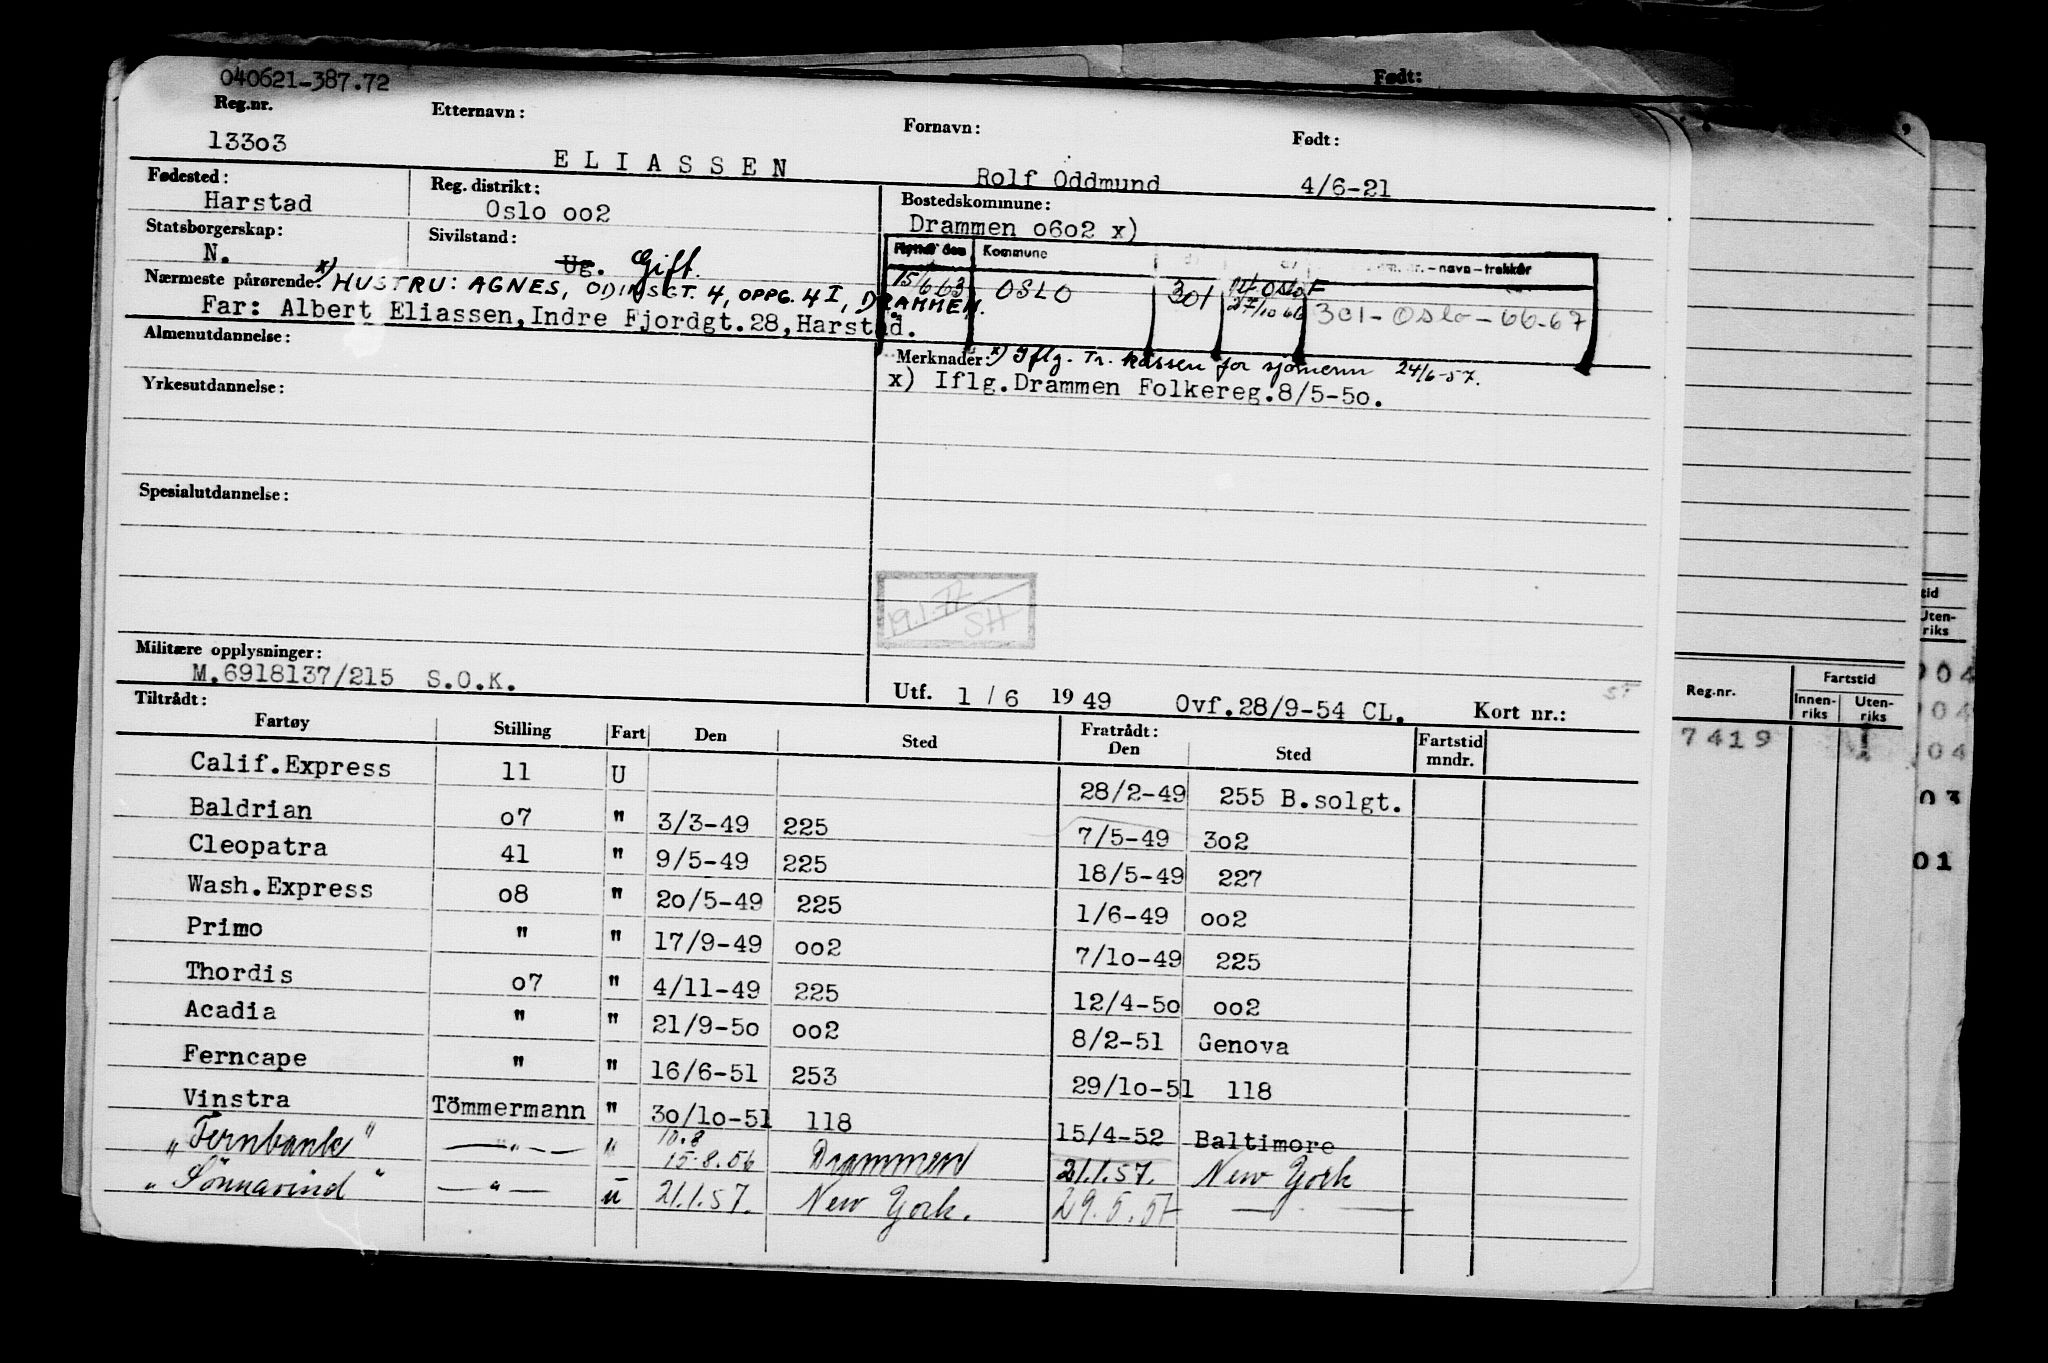 040621-387.72
Født:
Reg.nr. Etternavn: Fornavn: Født:
13303 ELIASSEN Rolf Oddmund 4/6-21
Fødested: Reg. distrikt: Bostedskommune:
Harstad Oslo 002 Drammen 0602 x)
Statsborgerskap: Sivilstand:
N. Ug. Gift.
Kommune
- navn - trekkår
15/6 63 OSLO 301 Oslo F
27/10 66 301 - Oslo - 66-67
Nærmeste pårørende: x) HUSTRU: AGNES, ODINSGT. 4, OPPG. 4 I, DRAMMEN.
Far: Albert Eliassen, Indre Fjordgt.28, Harstad.
Almenutdannelse:
Merknader: x) Iflg. Tr. kassen for sjømenn 24/6-57.
x) Iflg.Drammen Folkereg.8/5-50.
Yrkesutdannelse:
Spesialutdannelse:
19.1.72
SH
Militære opplysninger:
M.6918137/215 S.O.K.
Utf. 1 / 6 1949 Ovf.28/9-54 CL. Kort nr.:
Tiltrådt: Fratrådt:
Fartøy Stilling Fart Den Sted Den Sted Fartstid mndr.
Calif.Express 11 U 28/2-49 255 B.solgt.
Baldrian 07 " 3/3-49 225 7/5-49 302
Cleopatra 41 " 9/5-49 225 18/5-49 227
Wash.Express 08 " 20/5-49 225 1/6-49 002
Primo " " 17/9-49 002 7/10-49 225
Thordis 07 " 4/11-49 225 12/4-50 002
Acadia " " 21/9-50 002 8/2-51 Genova
Ferncape " " 16/6-51 253 29/10-51 118
Vinstra Tömmermann " 30/10-51 118 15/4-52 Baltimore
10.8
"Fernbank" —"— " 15.8.56 Drammen 21.1.57. New York
"Sönnavind" —"— u 21.1.57. New York. 29.5.57 — " —
Reg.nr. Fartstid
Innen-riks Uten-riks
7419
tid
Uten-
riks
904
04
04
03
01